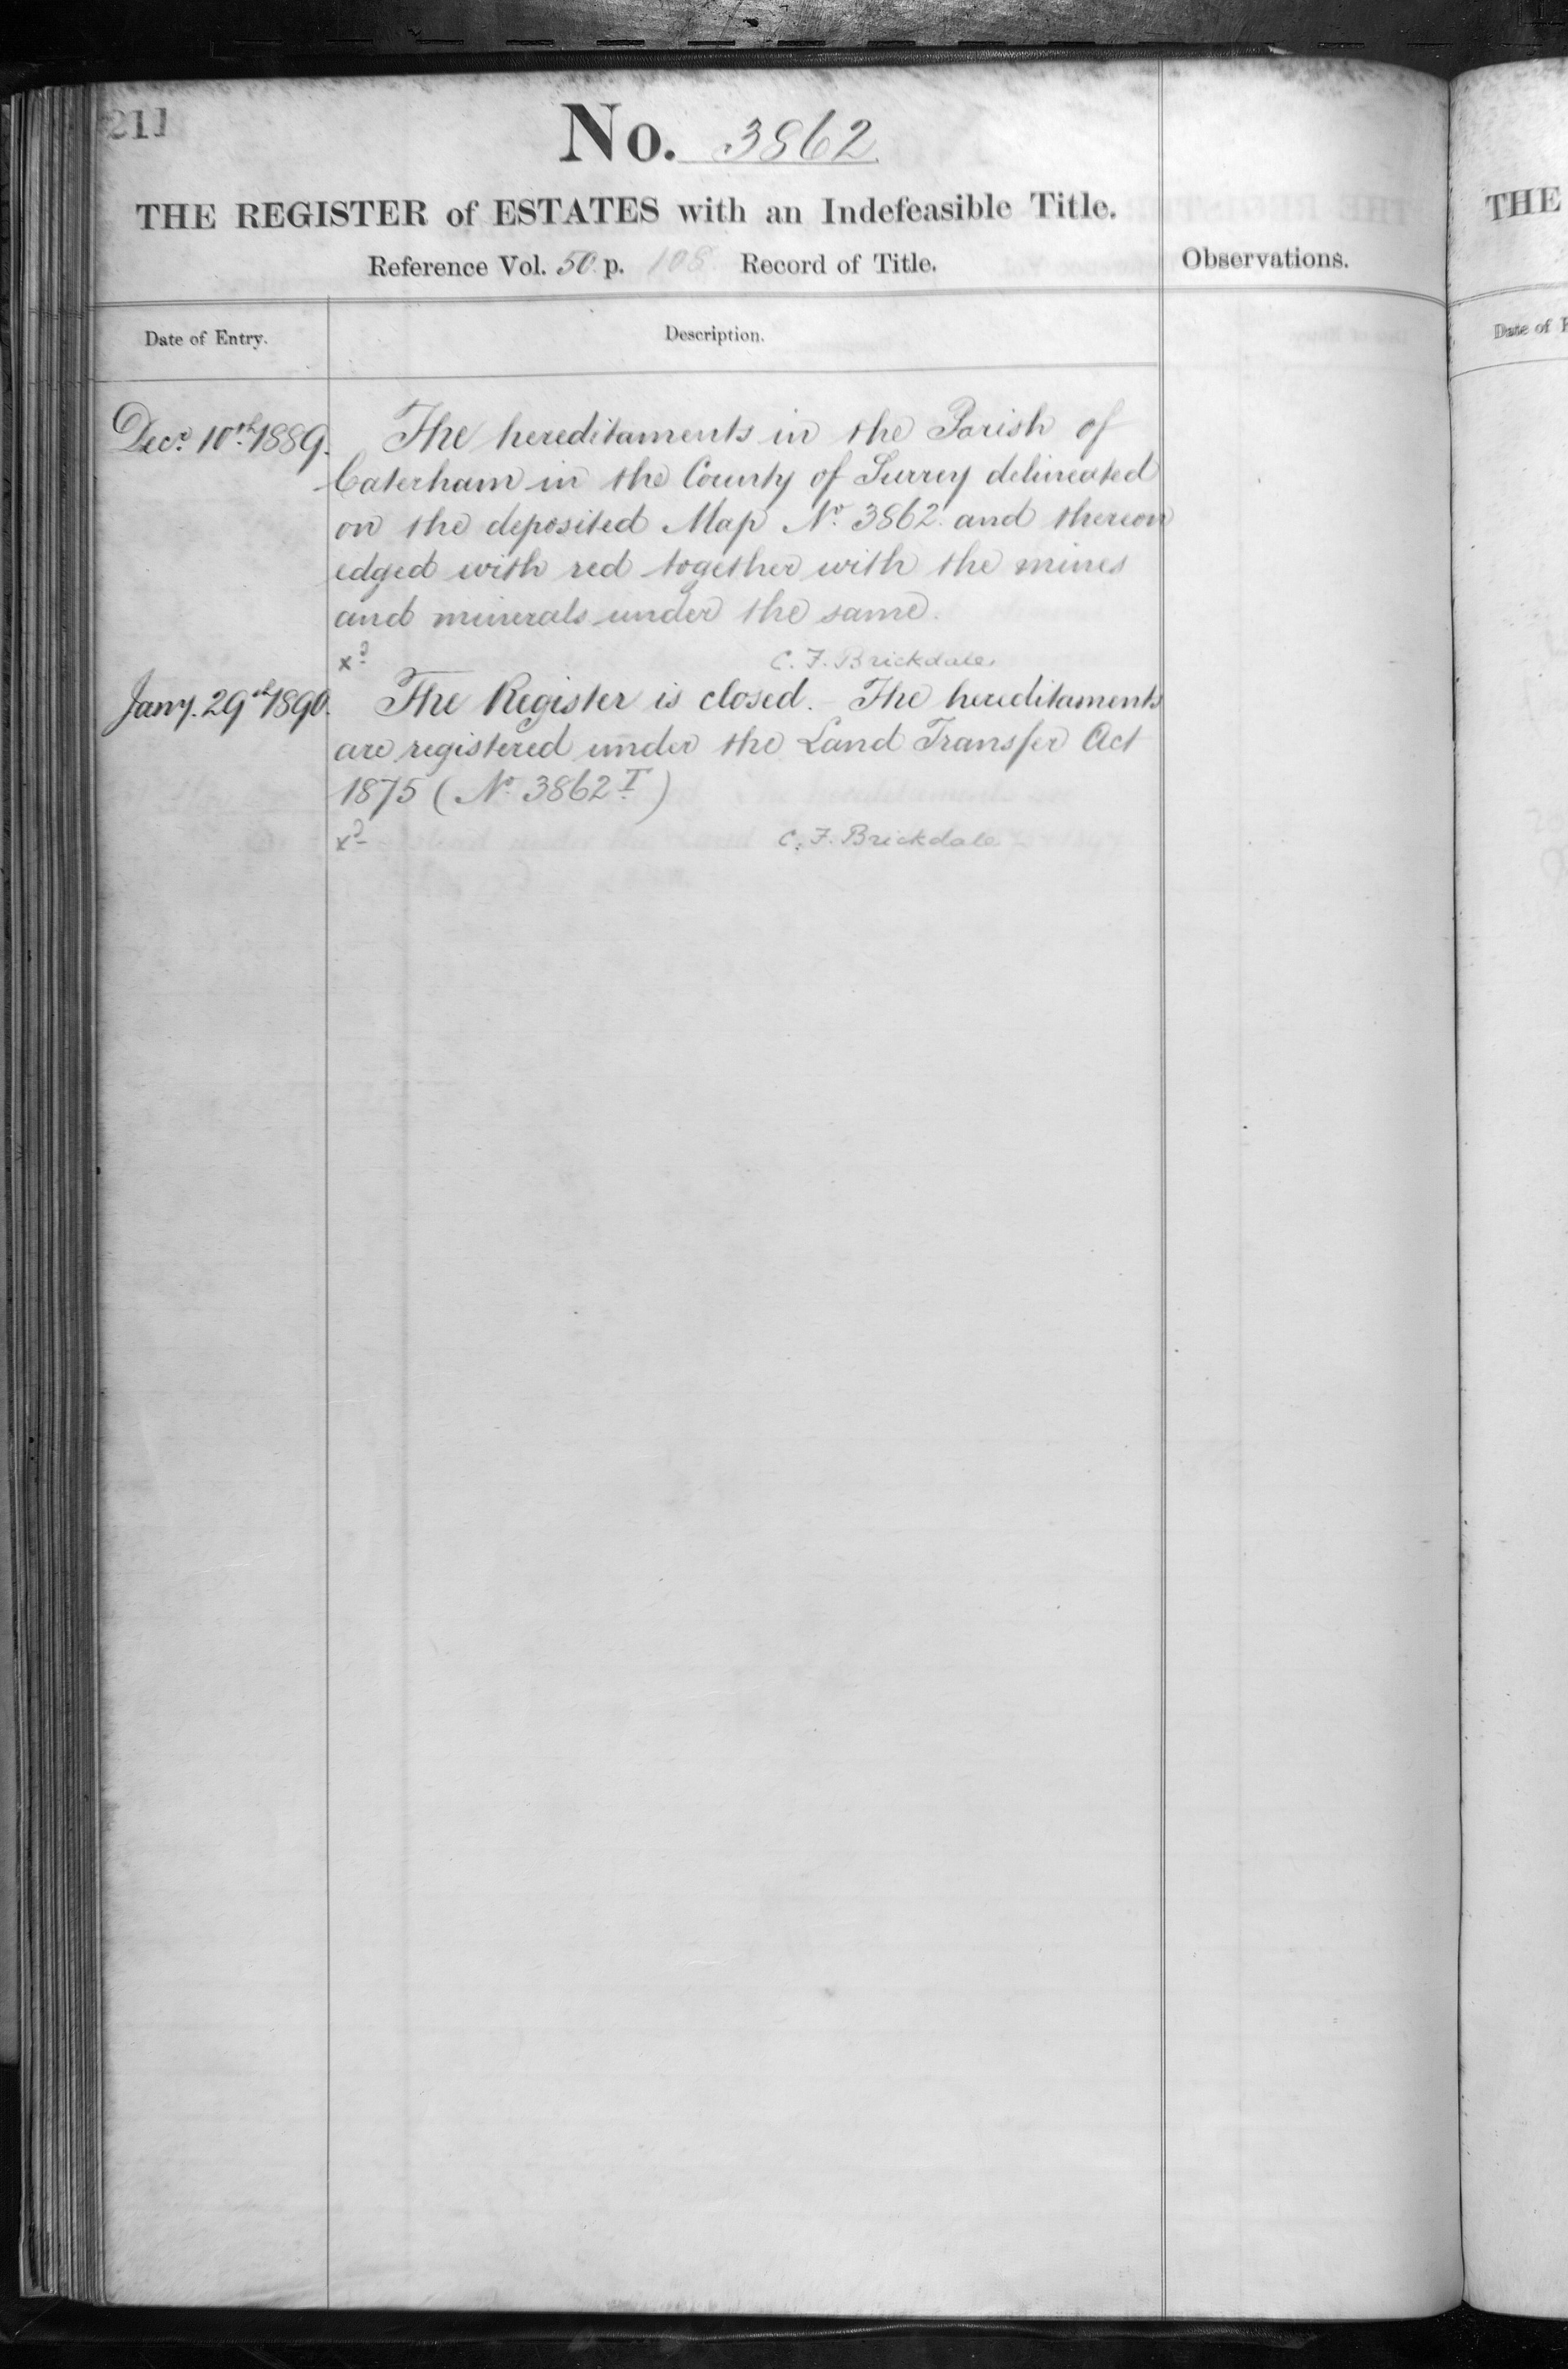 211
No. 3862
THE REGISTER of ESTATES with an Indefeasible Title.
Reference Vol. 50. p. 108. Record of Title.
Observations.
Date of Entry.
Description.
Decr. 10th 1889.
The hereditaments in the Parish of
Caterham in the County of Surrey delineated
on the deposited Map No. 3862 and thereon
edged with red together with the mines
and minerals under the same.
xd
C. F. Brickdale.
Jany. 29th 1890.
The Register is closed. - The hereditaments
are registered under the Land Transfer Act
1875 (No. 3862 T)
xd
C. F. Brickdale
THE
Date of